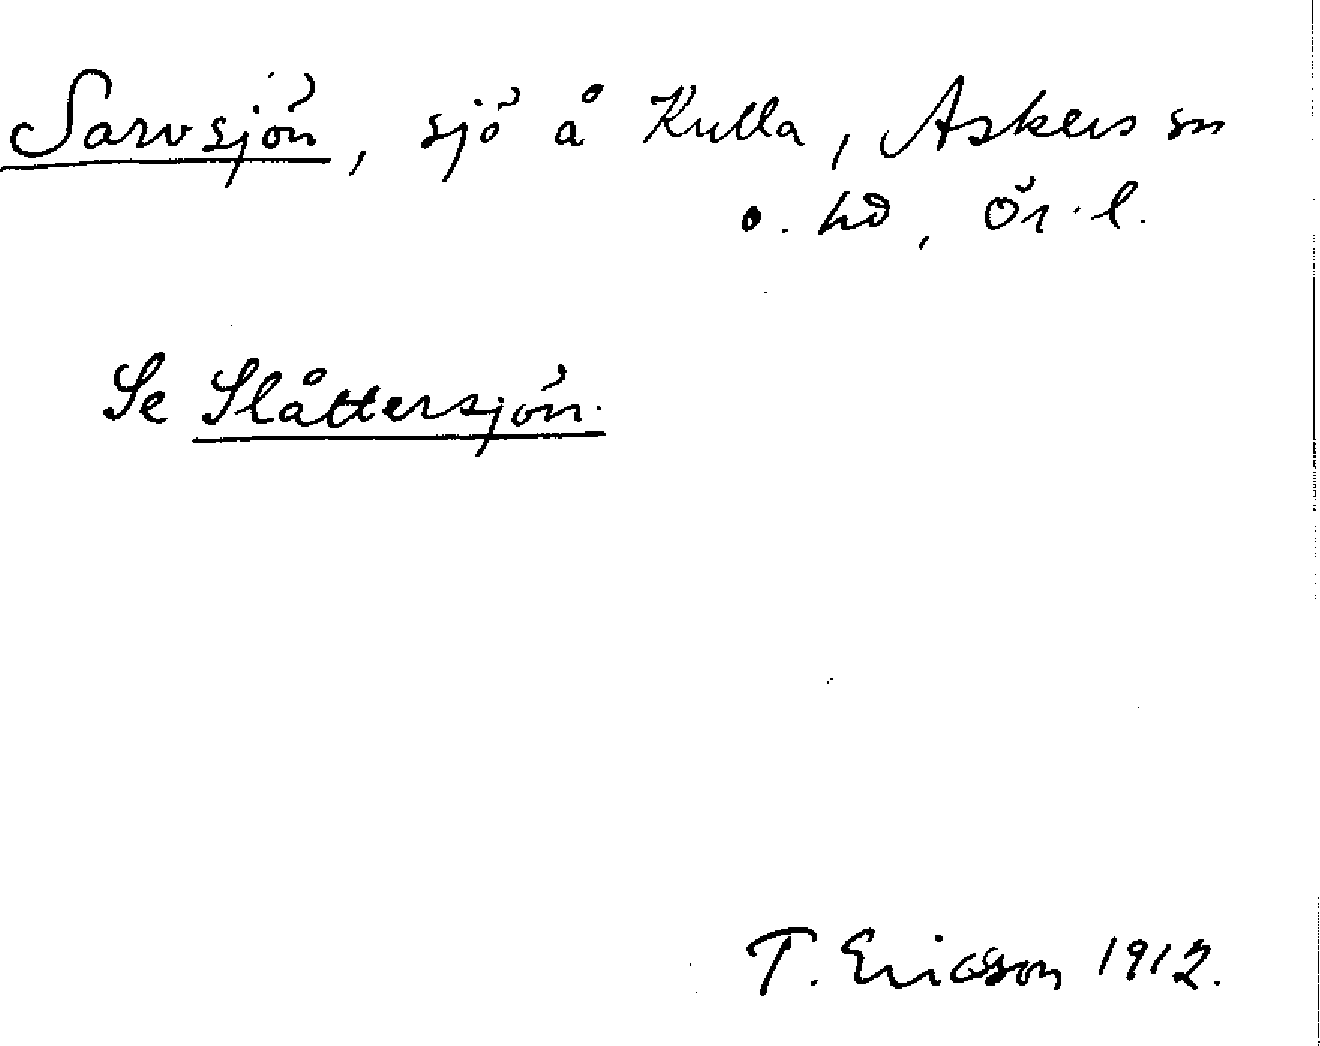 Sarvsjön, sjö å Kulla, Askers sn
o. hd, Ör. l.
Se Slåttersjön.
T. Ericsson 1912.